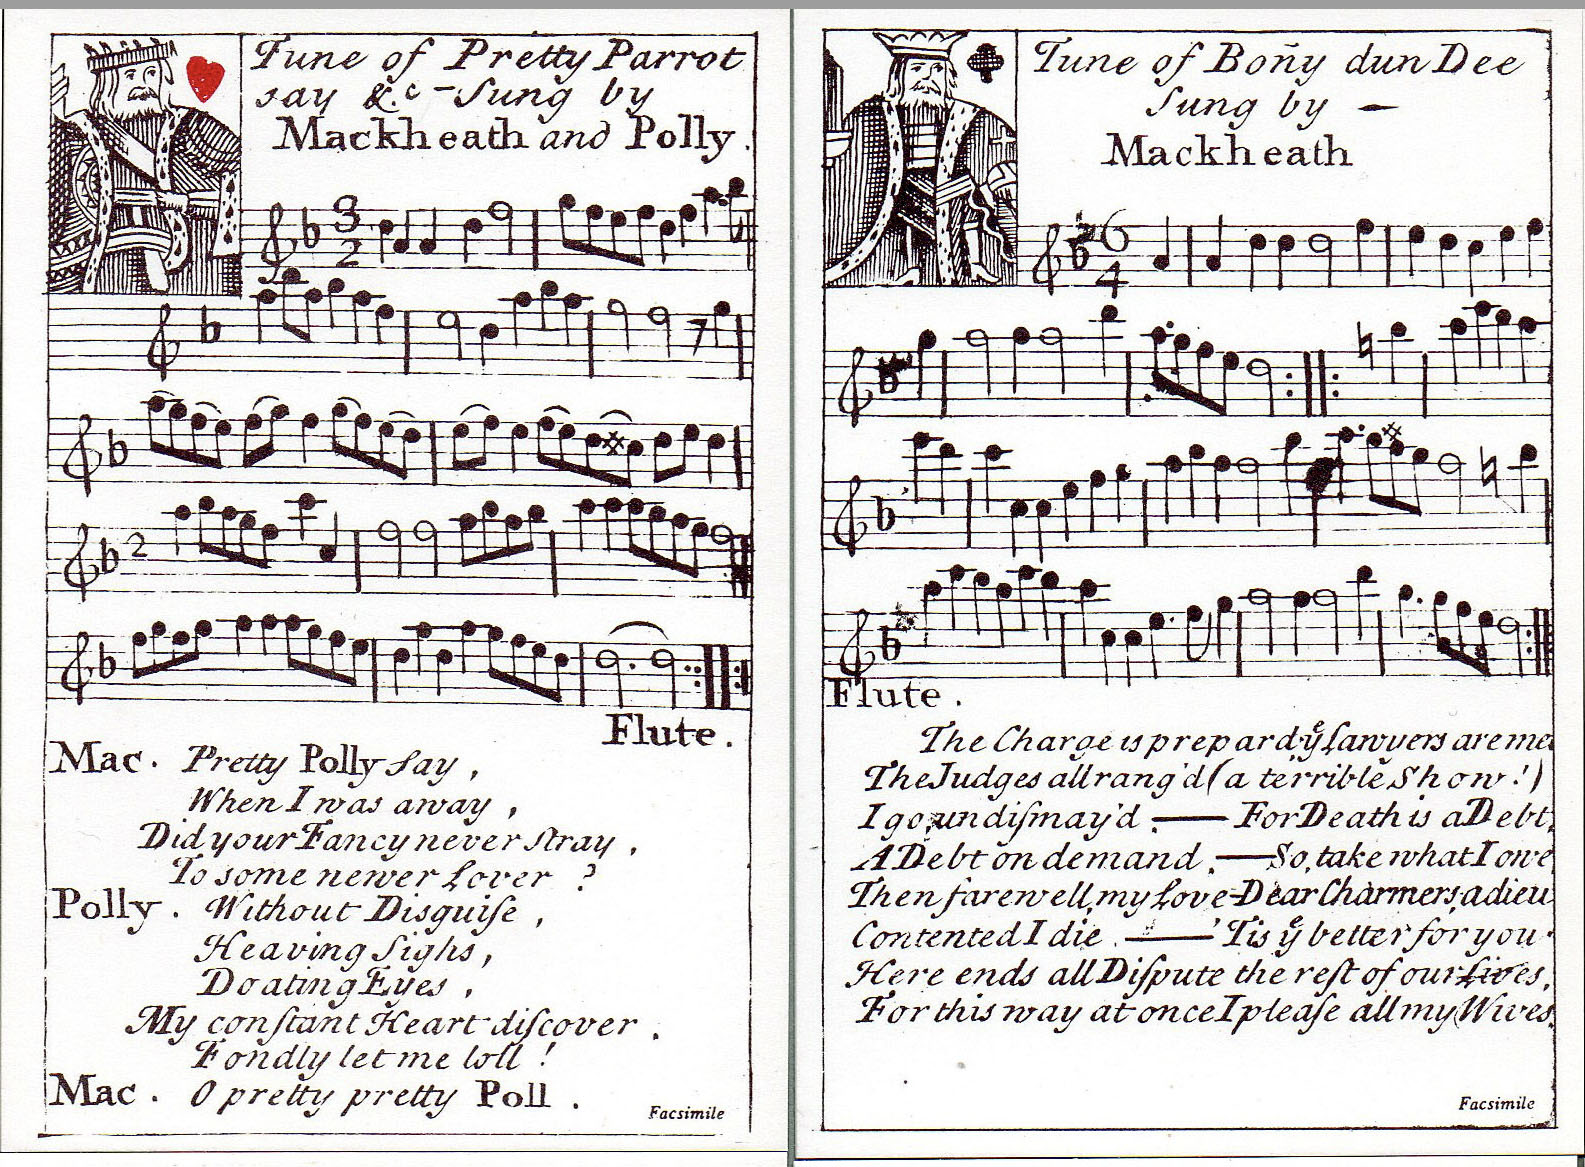 Tune of Pretty Parrot
say &.c - Sung by
Mackheath and Polly.
3
2
2
Flute.
Mac. Pretty Polly ſay,
When I was away,
Did your Fancy never ſtray,
To some newer Lover ?
Polly. Without Disguiſe,
Heaving Sighs,
Doating Eyes,
My conſtant Heart diſcover.
Fondly let me loll !
Mac. O pretty pretty Poll.
Facsimile
Tune of Boñy dun Dee
Sung by —
Mackheath
6
4
Flute.
The Charge is prepard yͤ Lawyers are met
The Judges all rang'd (a terrible Show!)
I go, undiſmay'd. — For Death is a Debt,
A Debt on demand. — So, take what I owe
Then farewell, my Love - Dear Charmers, adieu
Contented I die. — 'Tis yͤ better for you.
Here ends all Diſpute the reſt of our Lives,
For this way at once I pleaſe all my Wives.
Facsimile